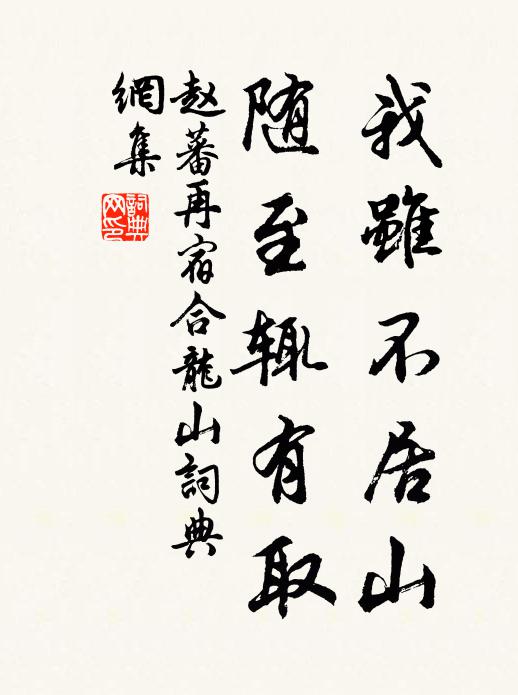 我雖不居山
随至辄有取
赵蕃再宿合龍山詞典
網集
詞典
网印